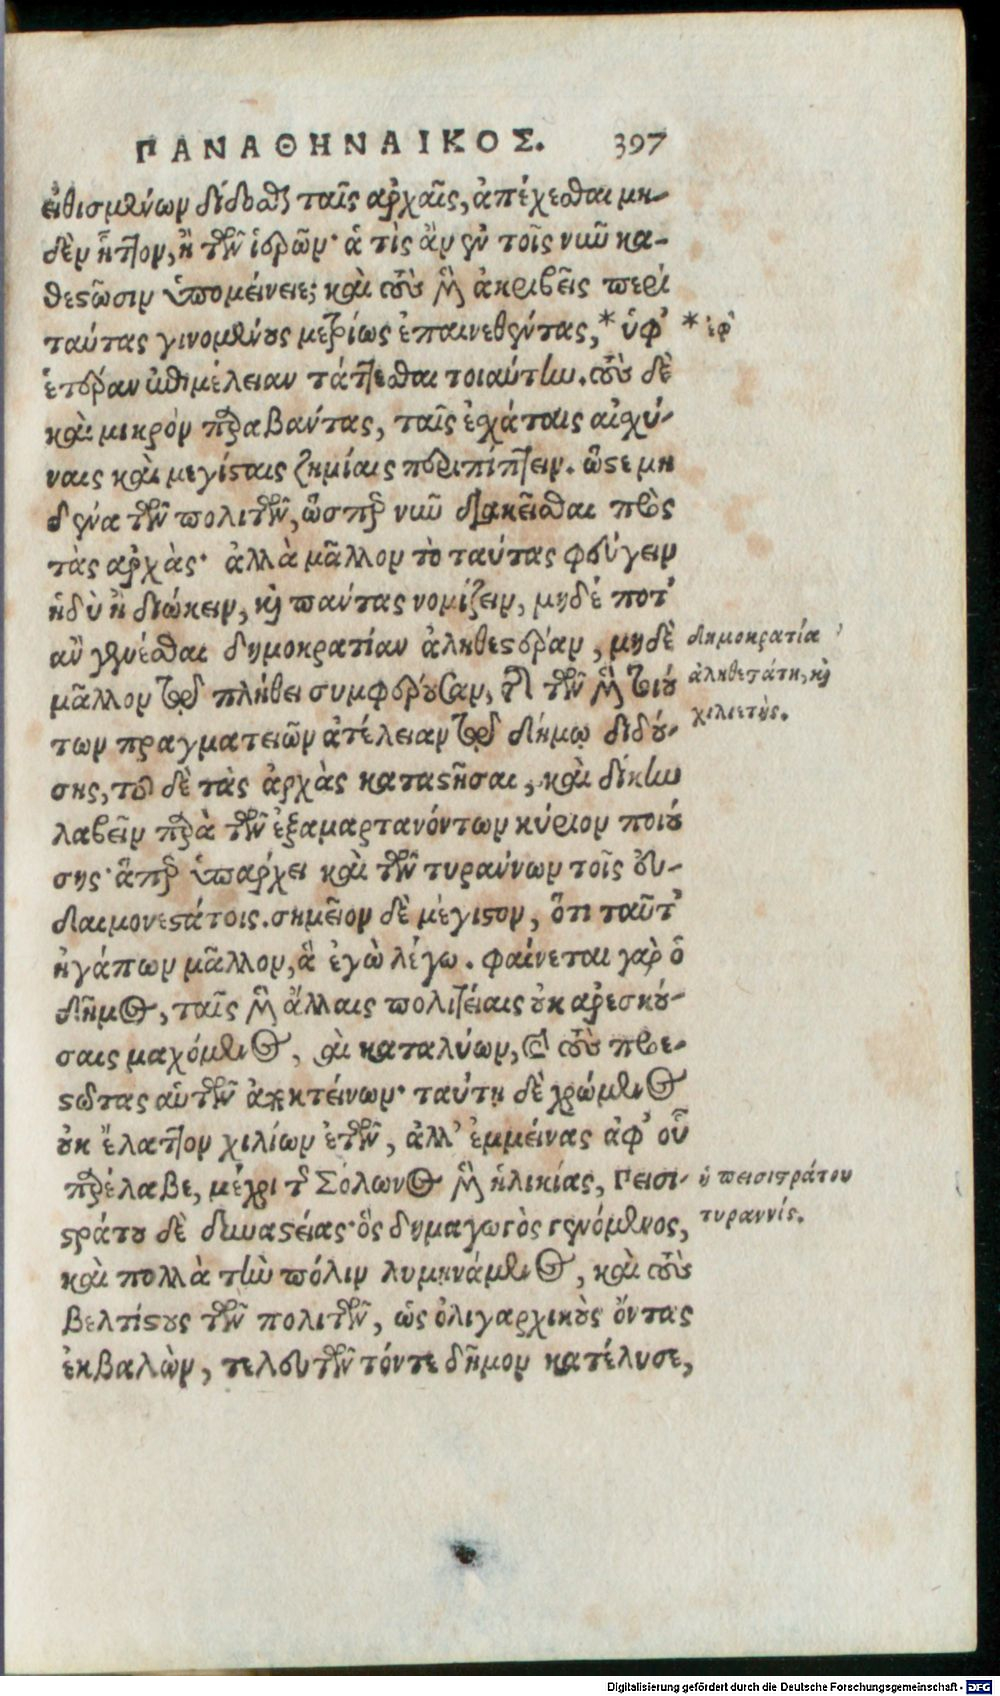 ΠΑΝΑΘΗΝΑΙΚΟΣ. 397
εἰθισμένων δίδοσθαι ταῖς ἀρχαῖς, ἀπέχεσθαι μη-
δὲν ἧττον, ἢ τῶν ἱερῶν· ἃ τὶς ἂν ἐν τοῖς νῦν κα-
θεστῶσιν ὑπομείνειε; καὶ τοὺς μὲν ἀκριβεῖς περὶ
ταύτας γινομένους μετρίως ἐπαινεθέντας, * ὑφ' * ἐφ'
ἑτέραν ἐπιμέλειαν τάττεσθαι τοιαύτην. τοὺς δὲ
καὶ μικρὸν παραβάντας, ταῖς ἐσχάταις αἰσχύ-
ναις καὶ μεγίσταις ζημίαις περιπίπτειν. ὥστε μη
δένα τῶν πολιτῶν, ὥσπερ νῦν διακεῖσθαι πρὸς
τὰς ἀρχὰς· ἀλλὰ μᾶλλον τὸ ταύτας φεύγειν
ἡδὺ ἢ διώκειν, καὶ πάντας νομίζειν, μηδέ ποτ'
ἂν γενέσθαι δημοκρατίαν ἀληθεστέραν, μηδὲ
δημοκρατία
μᾶλλον τῷ πλήθει συμφέρουσαν, τῆς τῶν μὲν τοιού
ἀληθεστάτη, καὶ
χιλιετὴς.
των πραγματειῶν ἀτέλειαν τῷ δήμῳ διδού-
σης, τοῦ δὲ τὰς ἀρχὰς καταστῆσαι, καὶ δίκην
λαβεῖν παρὰ τῶν ἐξαμαρτανόντων κύριον ποιού
σης· ἅπερ ὑπάρχει καὶ τῶν τυράννων τοῖς εὐ-
δαιμονεστάτοις. σημεῖον δὲ μέγιστον, ὅτι ταῦτ'
ἠγάπων μᾶλλον, ἃ ἐγὼ λέγω. φαίνεται γὰρ ὁ
δῆμος, ταῖς μὲν ἄλλαις πολιτείαις οὐκ ἀρεσκού-
σαις μαχόμενος, καὶ καταλύων, καὶ τοὺς προε-
στῶτας αὐτῶν ἀποκτείνων· ταύτῃ δὲ χρώμενος
οὐκ ἔλαττον χιλίων ἐτῶν, ἀλλ' ἐμμείνας ἀφ' οὗ
παρέλαβε, μέχρι τῆς Σόλωνος μὲν ἡλικίας, Πεισι-
ἡ πεισιστράτου
στράτου δὲ δυναστείας· ὃς δημαγωγὸς γενόμενος,
τυραννίς.
καὶ πολλὰ τὴν πόλιν λυμηνάμενος, καὶ τοὺς
βελτίστους τῶν πολιτῶν, ὡς ὀλιγαρχικοὺς ὄντας
ἐκβαλὼν, τελευτῶν τόντε δῆμον κατέλυσε,
Digitalisierung gefördert durch die Deutsche Forschungsgemeinschaft - DFG